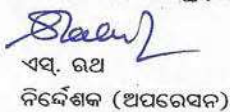 ଏସ୍. ରଥ
ନିର୍ଦ୍ଦେଶକ (ଅପରେସନ)